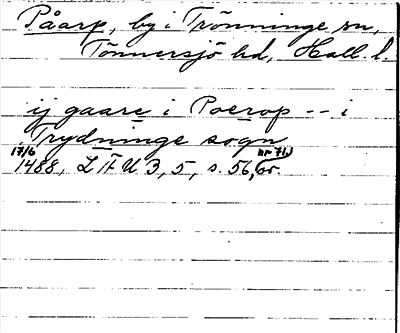 Påarp, by i Trönninge sn,
Tönnersjö hd, Hall. l.
ij gaare i Poerop -- i
Trydninge sogn
17/6 nr 71,
1488, LÄU 3, 5, s. 56, or.